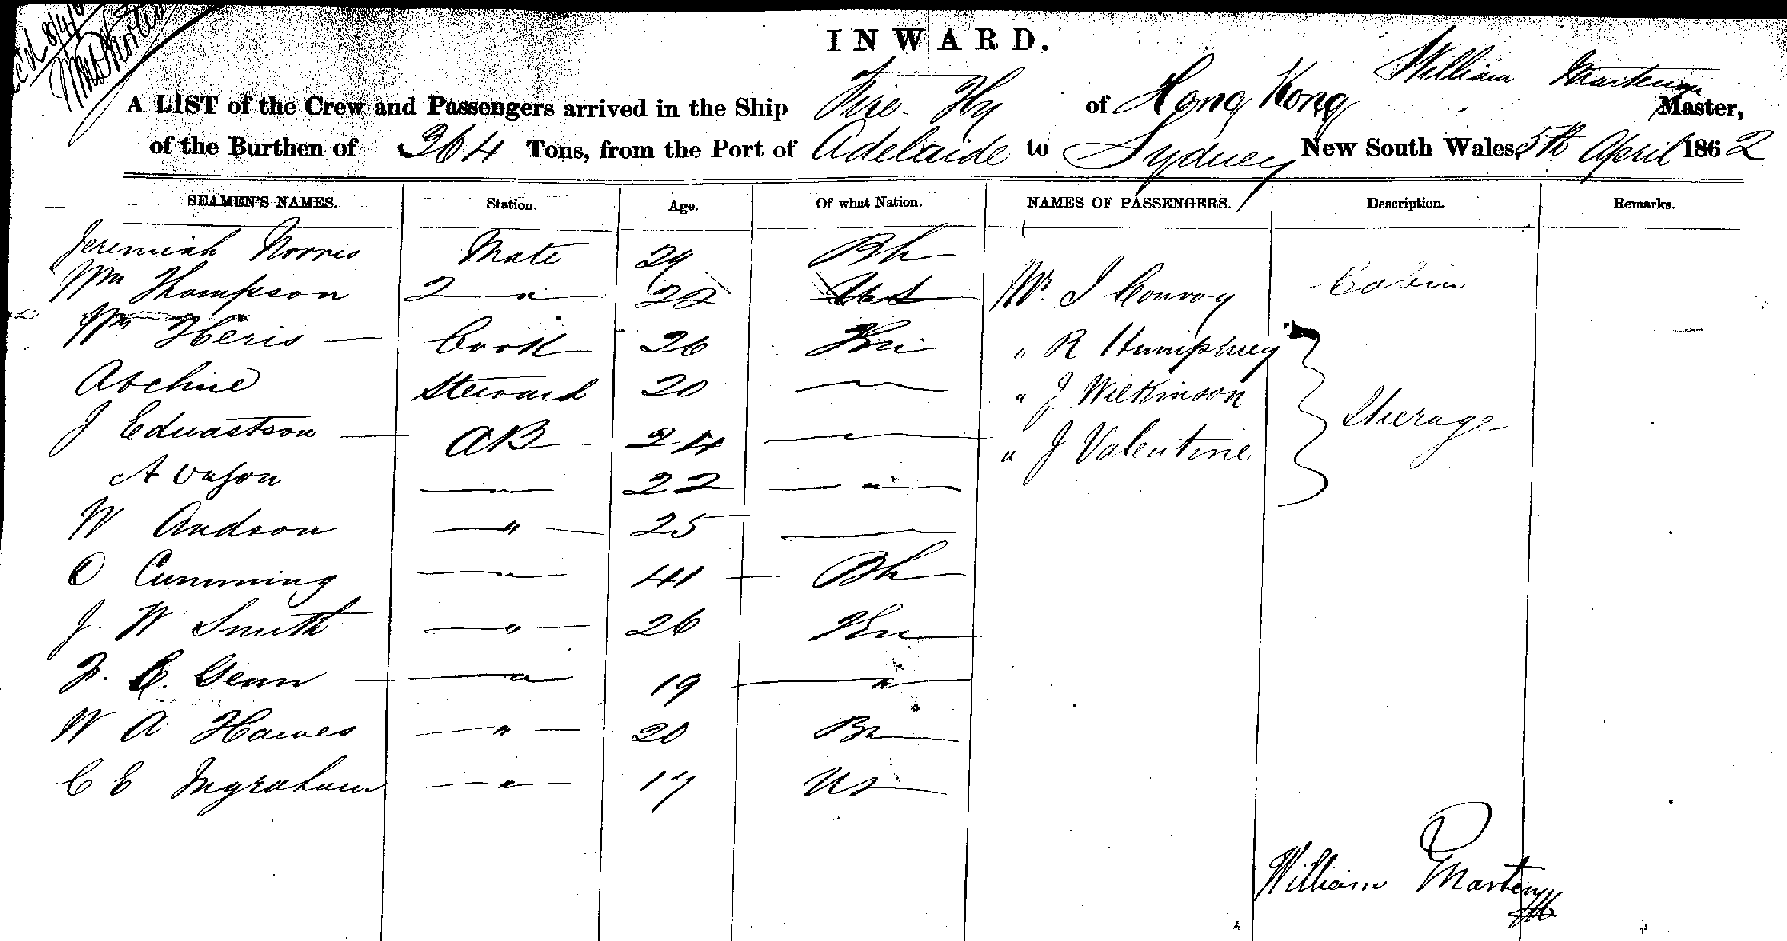 INWARD.
William Martin
A LIST of the Crew and Passengers arrived in the Ship Fire Fly of Hong Kong Master,
of the Burthen of 264 Tons, from the Port of Adelaide to Sydney New South Wales 5th April 1862
SEAMEN'S NAMES. Station. Age. Of what Nation. NAMES OF PASSENGERS. Description. Remarks.
Jeremiah Norris Mate 29 Bh
Wm Thompson 2 " 22 Mr. J Conroy Cabin
Wm Heris Cook 26 " R Humphrey
Steward 20 " J Wilkinson Steerage
J AB 24 " J Valentine
A 22 "
W " 25
Cumming " 41 Bh
J W Smith " 26
" 19 "
W A Hawes " 20 Br
C E Ingraham " 17 US
William Martin